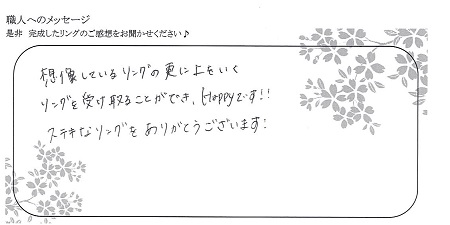 職人へのメッセージ
是非 完成したリングのご感想をお聞かせください♪
想像しているリングの更に上をいく
リングを受け取ることができ、Happyです!!
ステキなリングをありがとうございます!